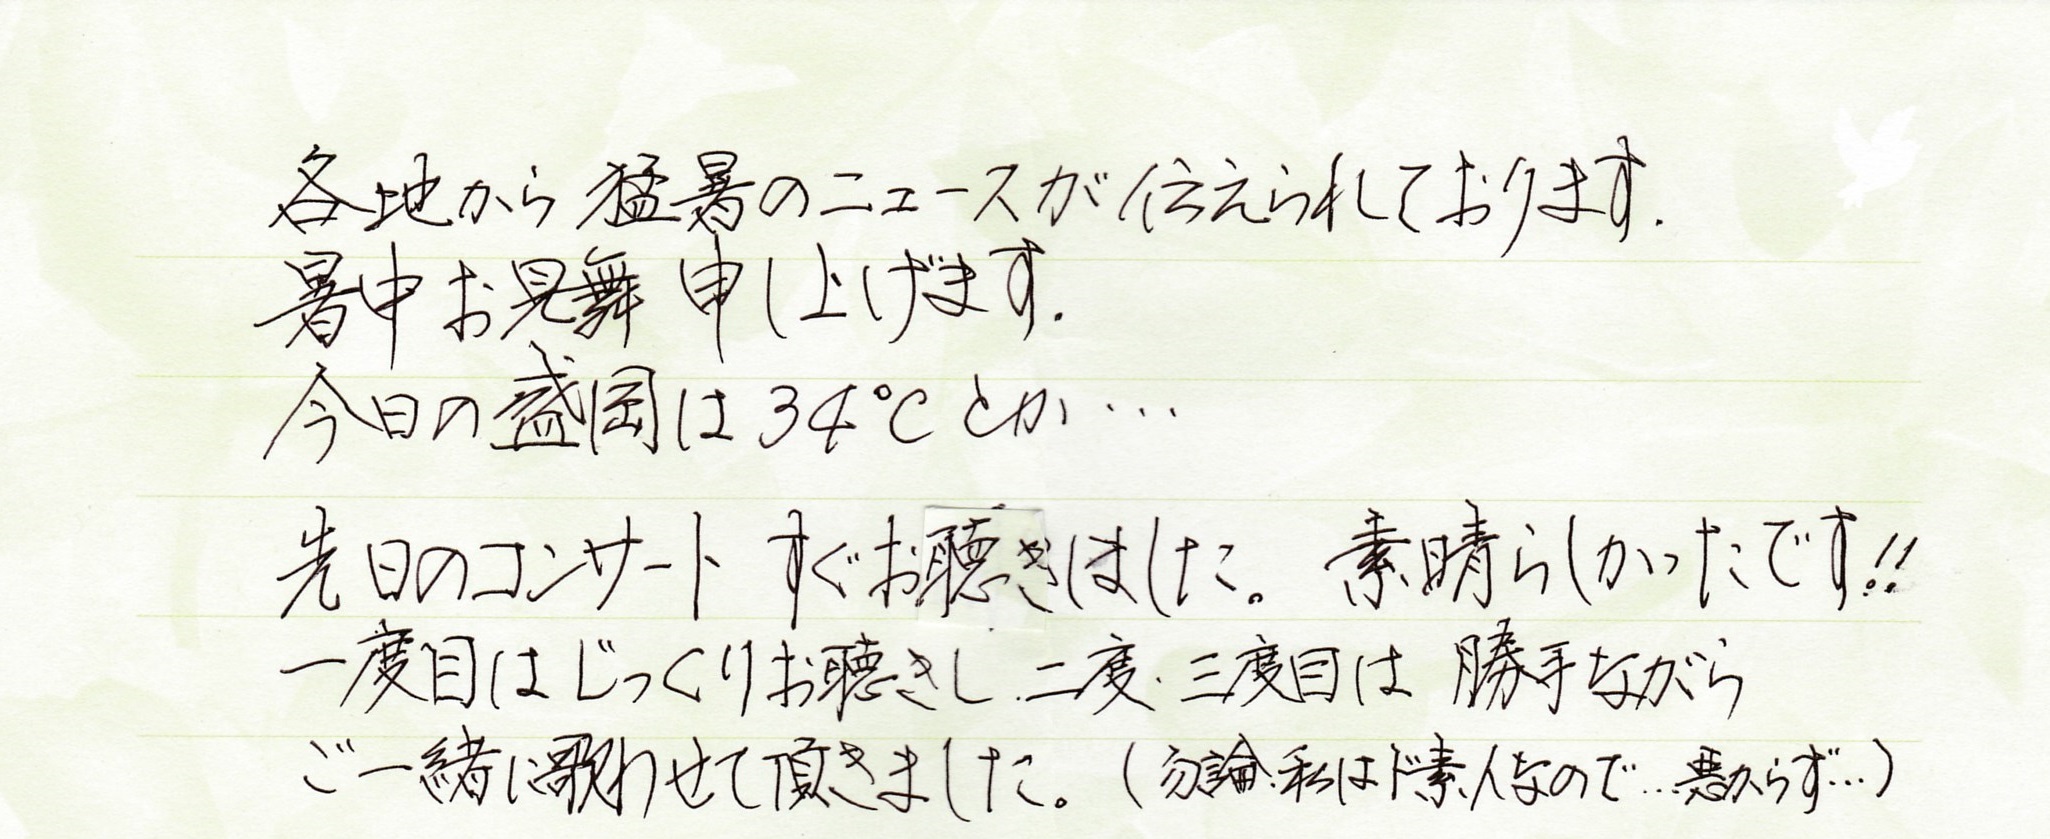 各地から猛暑のニュースが伝えられております.
暑中お見舞申し上げます.
今日の盛岡は34℃とか…
先日のコンサートすぐお聴きしました。素晴らしかったです!!
一度目はじっくりお聴きし、二度、三度目は勝手ながら
ご一緒に歌わせて頂きました。(勿論、私はド素人なので…悪からず…)